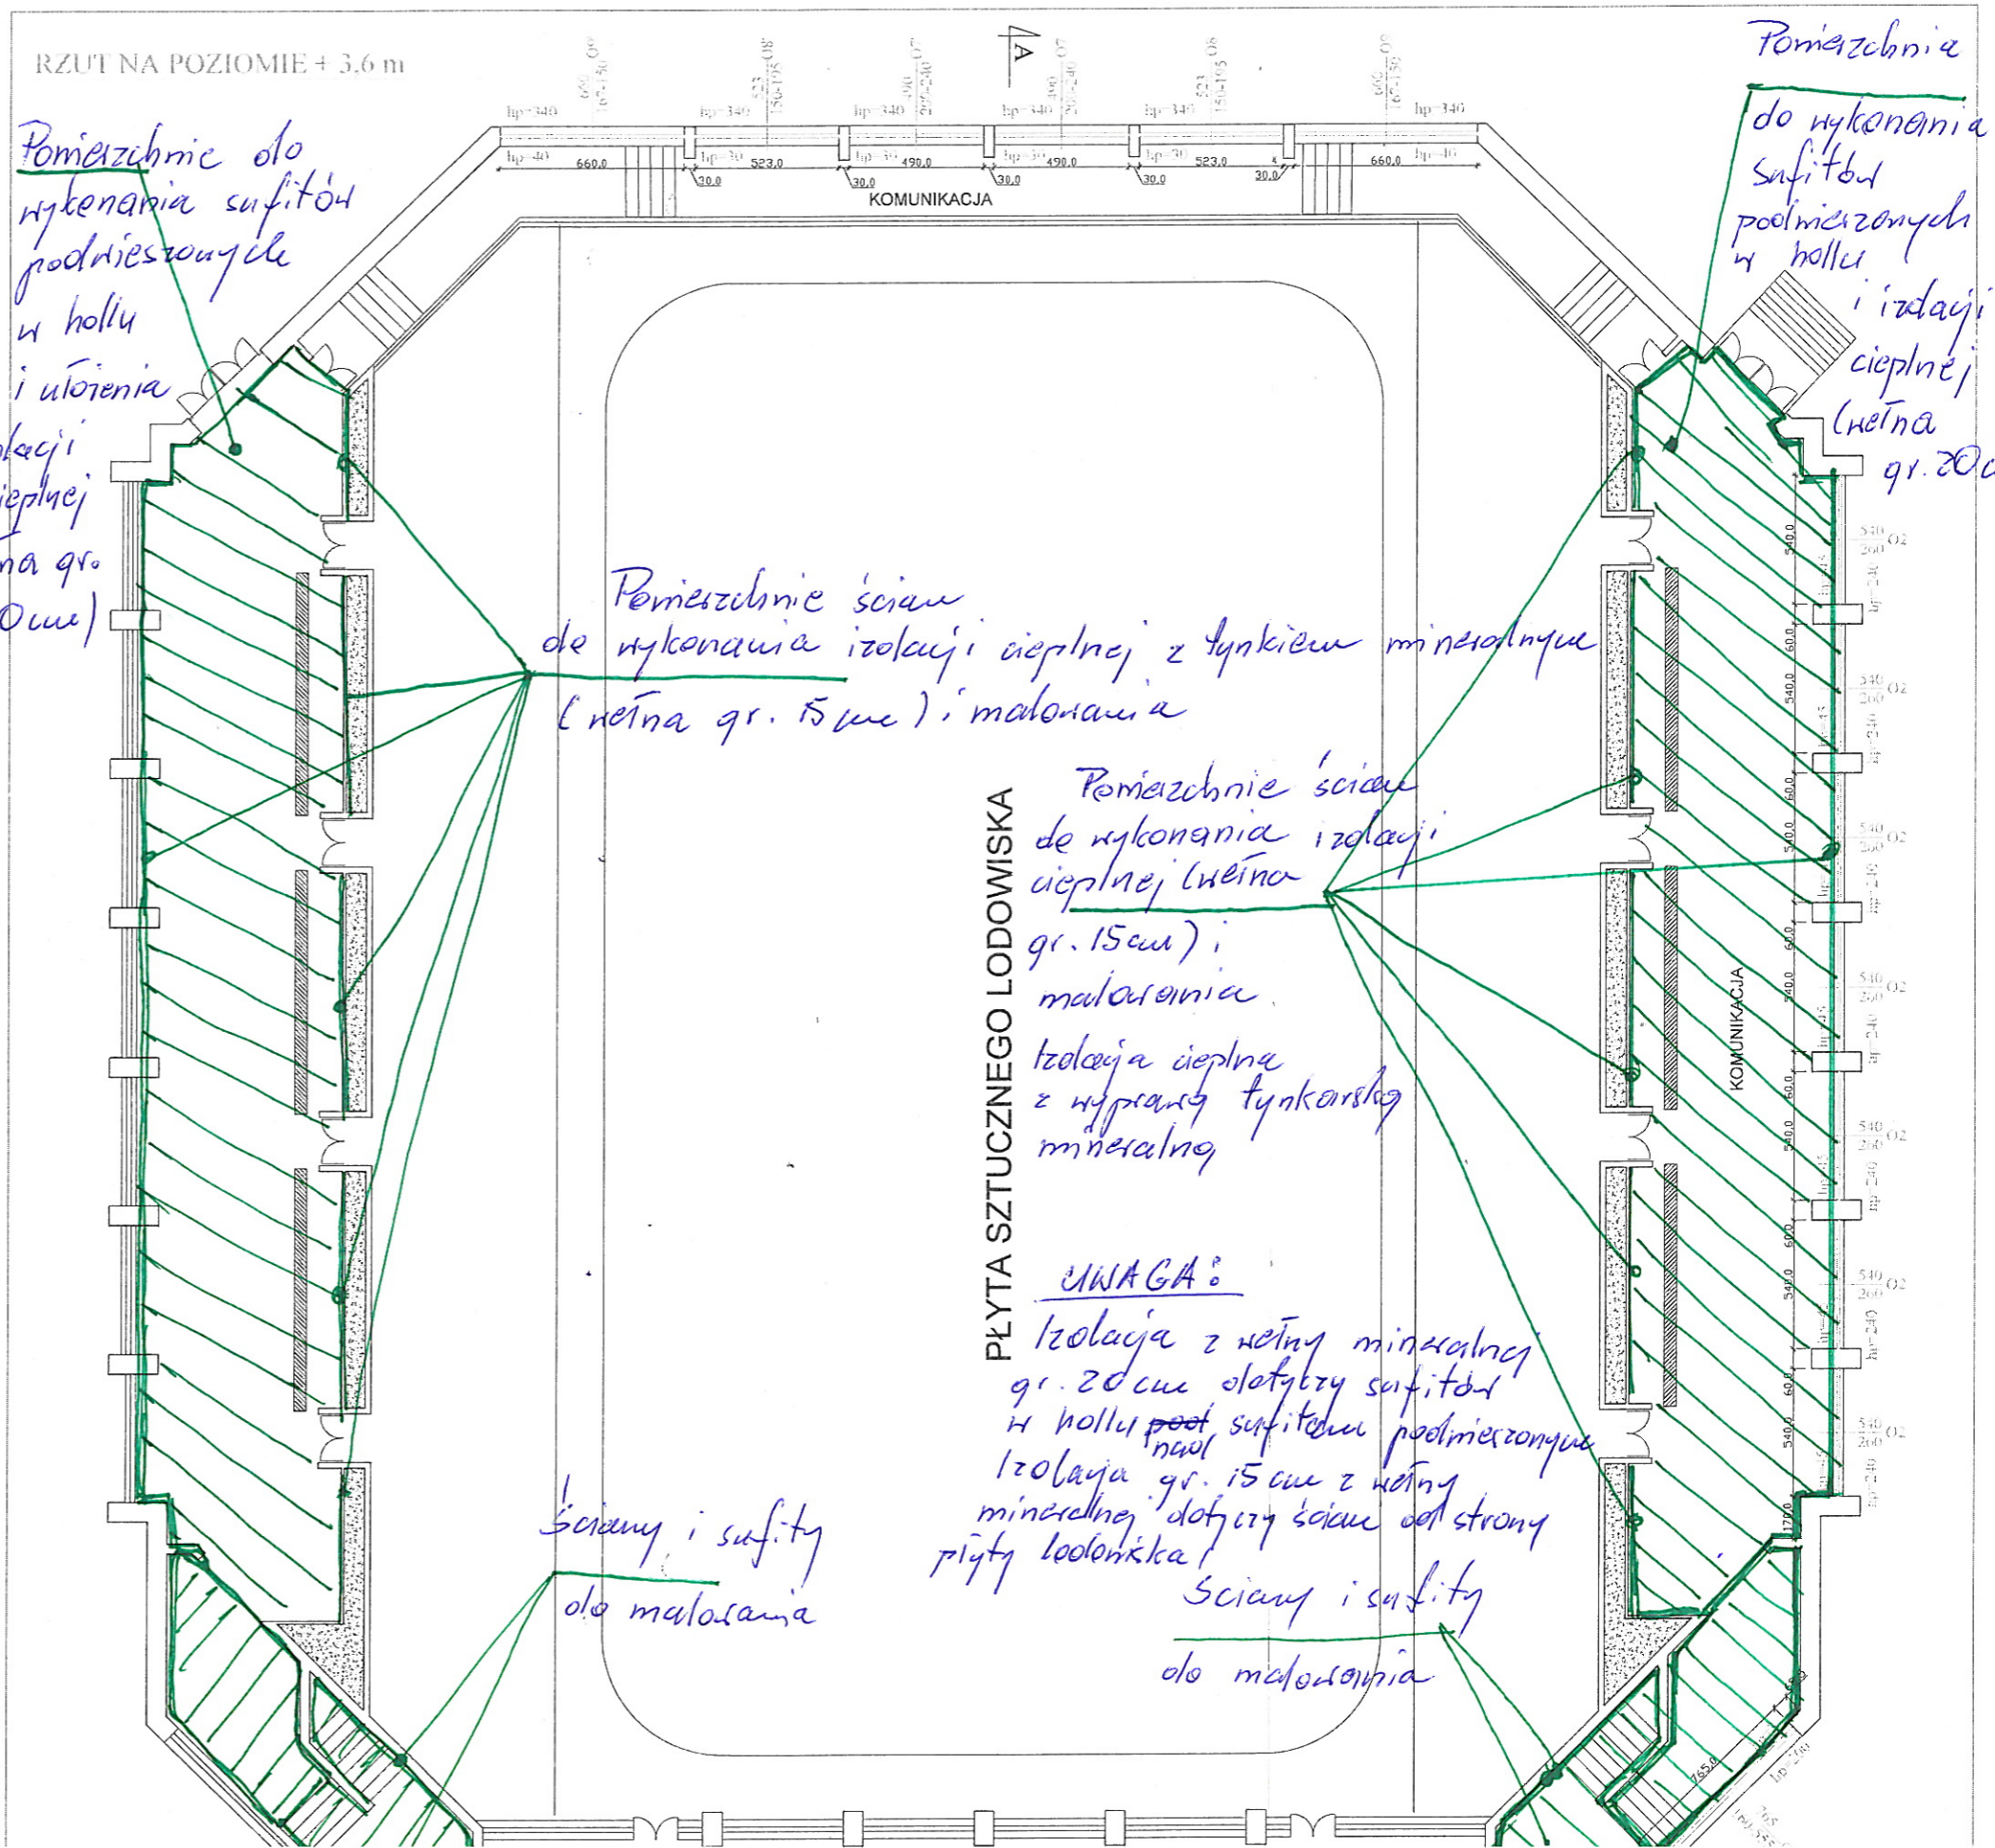 RZUT NA POZIOMIE + 3,6 m
A
660 O9
167-150
523 O8
150-195
490 O7
200-240
490 O7
200-240
523 O8
150-195
660 O9
167-150
hp=340 hp=340 hp=340 hp=340 hp=340 hp=340
hp=40 660,0 hp=30 523,0 hp=30 490,0 hp=30 490,0 hp=30 523,0 4 660,0 hp=40
30,0 30,0 30,0 30,0 30,0
KOMUNIKACJA
Powierzchnie do
wykonania sufitów
podwieszonych
w hollu
i ułożenia
olacji
ieplnej
na gr.
0 cm)
Powierzchnia
do wykonania
sufitów
podwieszonych
w hollu
i izolacji
cieplnej
(wełna
gr. 20 c
Powierzchnie ścian
do wykonania izolacji cieplnej z tynkiem mineralnym
(wełna gr. 15 cm) i malowania
Powierzchnie ścian
do wykonania izolacji
cieplnej (wełna
gr. 15 cm) i
malowania
Izolacja cieplna
z wyprawą tynkarską
mineralną
PŁYTA SZTUCZNEGO LODOWISKA
UWAGA:
Izolacja z wełny mineralnej
gr. 20 cm dotyczy sufitów
w hollu pod sufitem podwieszonym
nad
Izolacja gr. 15 cm z wełny
mineralnej dotyczy ścian od strony
płyty lodowiska
Ściany i sufity
do malowania
Ściany i sufity
do malowania
KOMUNIKACJA
540,0
60,0
540,0
60,0
540,0
60,0
540,0
60,0
540,0
60,0
540,0
60,0
540,0
170,0
540 O2
260
hp=240
540 O2
260
hp=240
540 O2
260
hp=240
540 O2
260
hp=240
540 O2
260
hp=240
540 O2
260
hp=240
540 O2
260
hp=240
765,0
hp=200
765